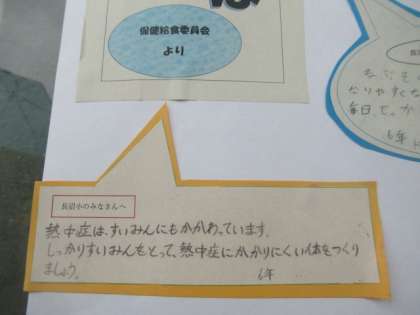 保健給食委員会
より
長沼小のみなさんへ
熱中症は、すいみんにもかかわっています。
しっかりすいみんをとって、熱中症にかかりにくい体をつくり
ましょう。
6年
なりやすくな
毎日
6年